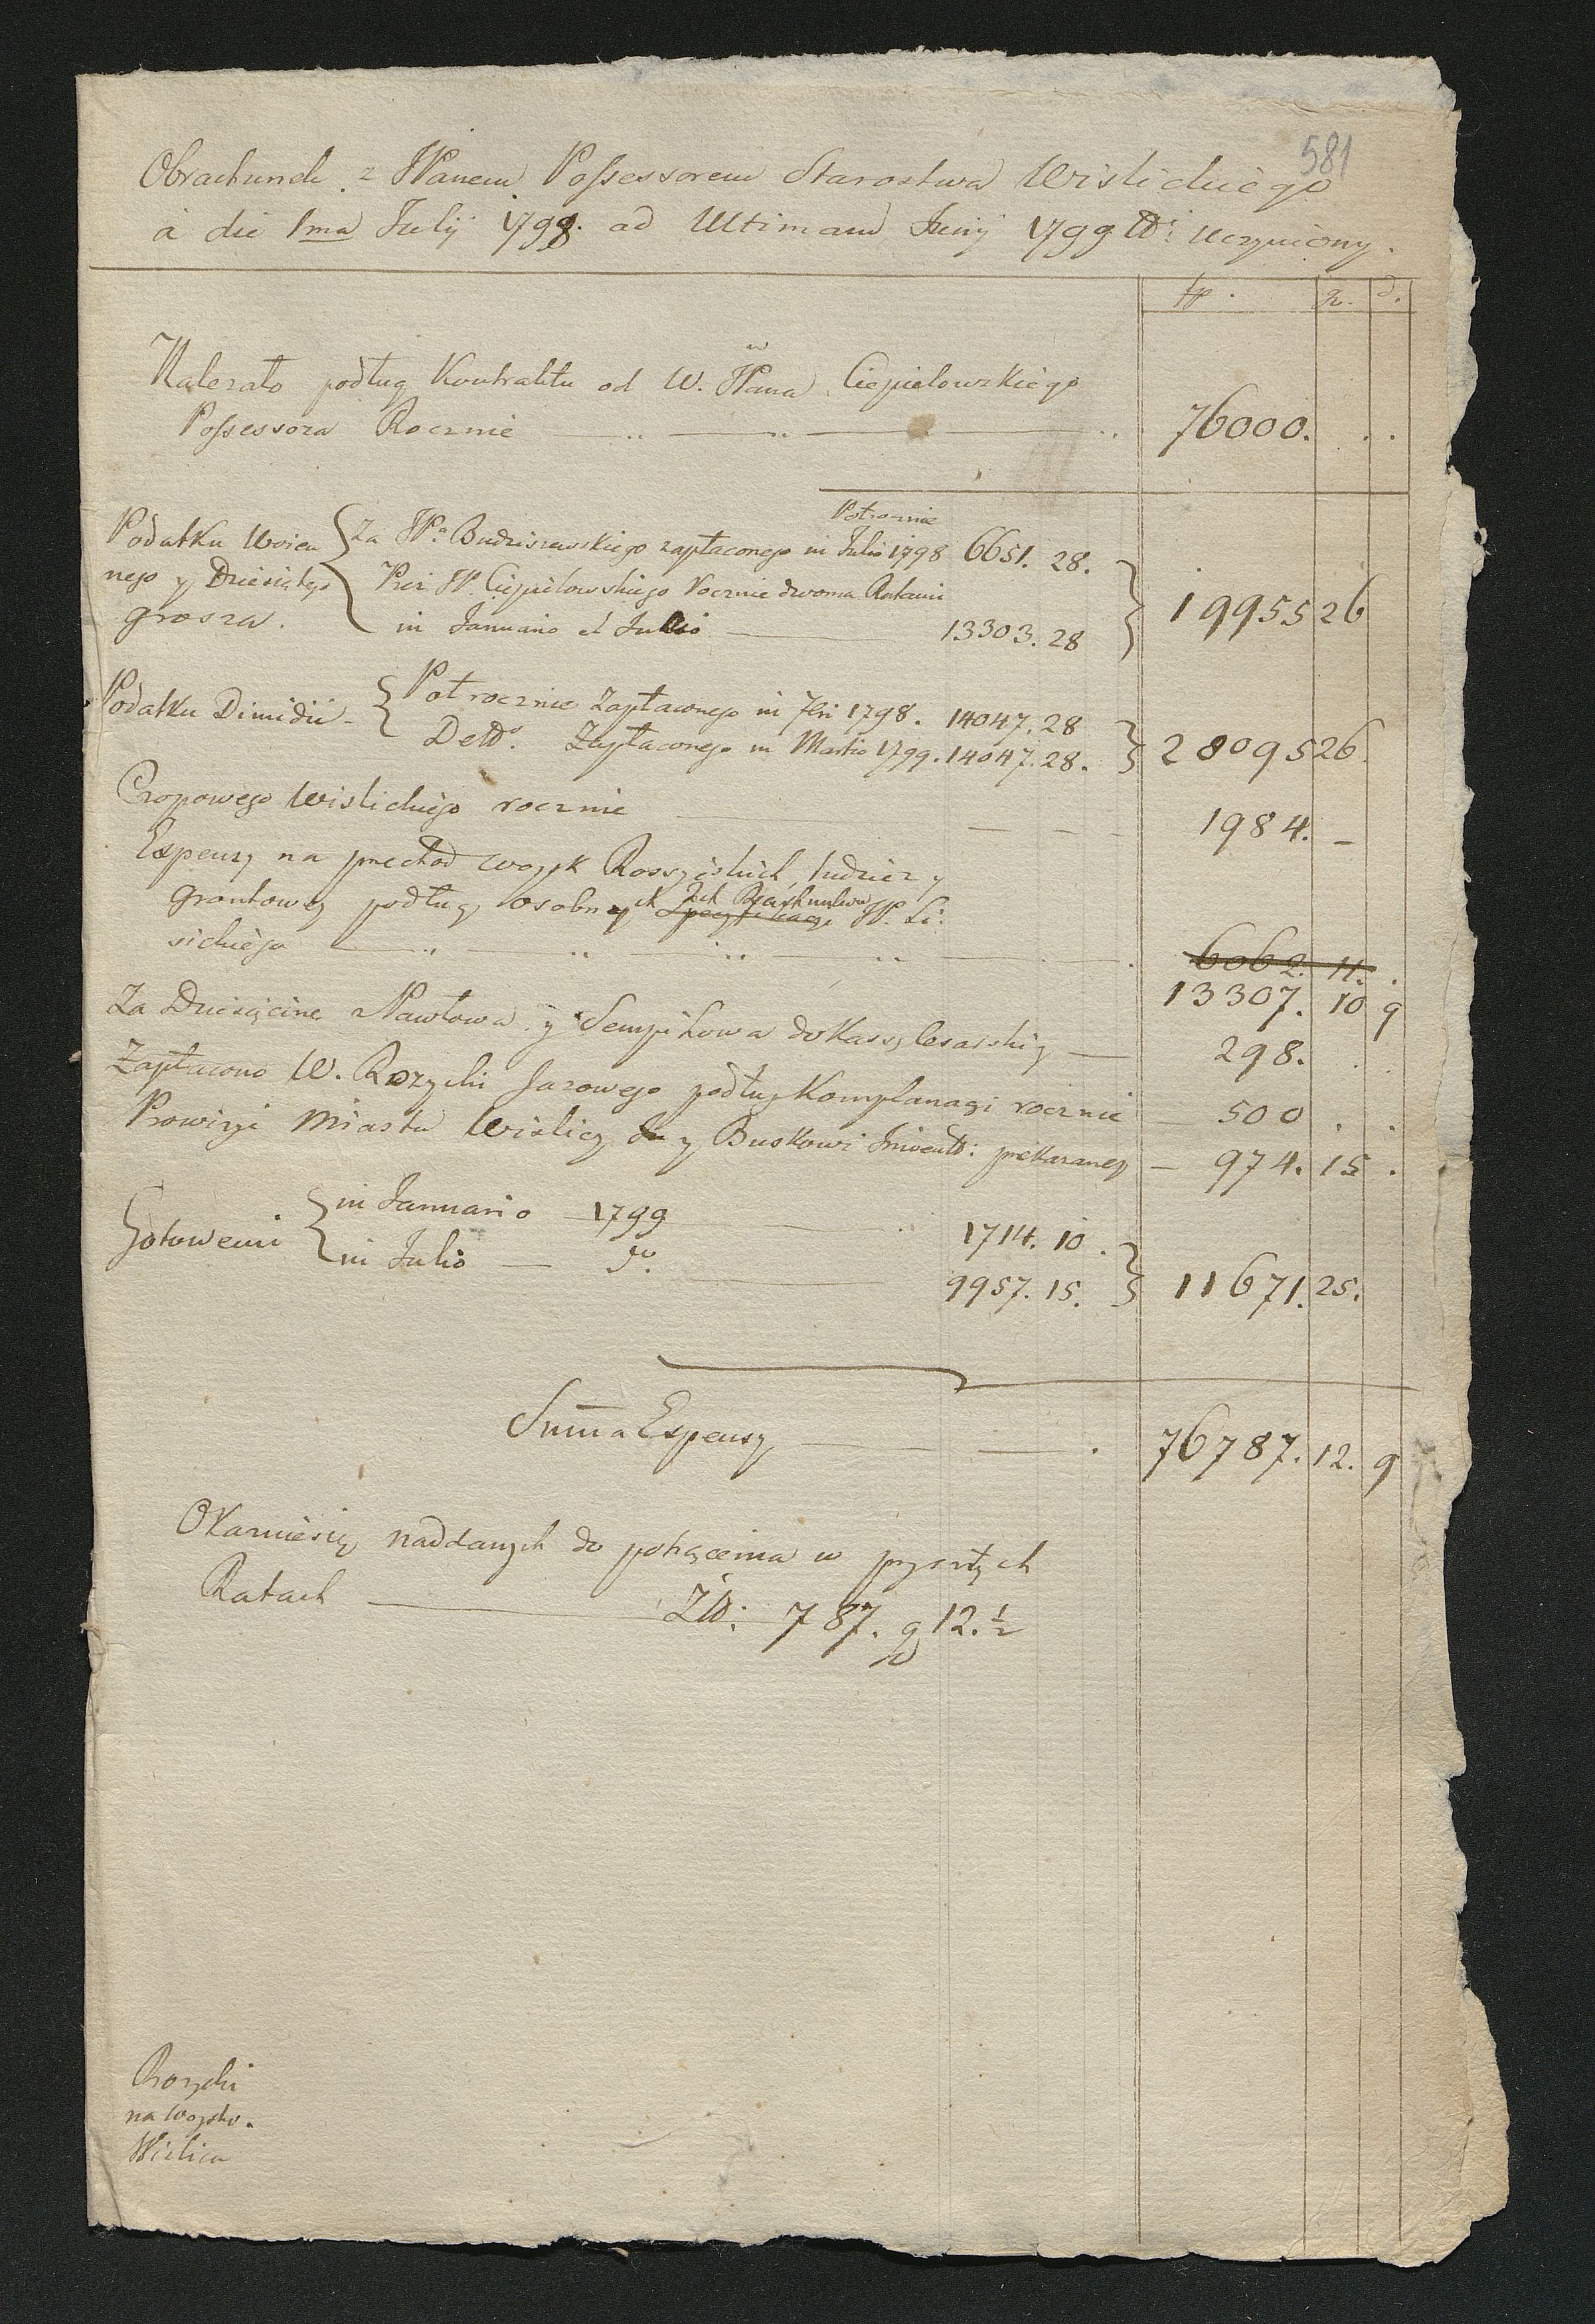 581
Obrachunek z JPanem Possessorem Starostwa Wislickiego
à die 1ma Julij 1798. ad Ultimam Junij 1799 uczyniony.
fp. gr. d.
Należało podług Kontraktu od W. JPana Ciepielowskiego
Possessora Rocznie 76000. . .
Połrocznie
Podatku Woien { Za JPa Budziszewskiego zapłaconego in Julio 1798 6651. 28.
nego y Dziesiątego Przez JP. Ciepielowskiego Rocznie dwoma Ratami } 19955 26
grosza. in Januario et Julio 13303. 28
Podatku Dimidii - { Połrocznie Zapłaconego in 7bri 1798. 14047. 28
Detto. Zapłaconego in Martio 1799. 14047. 28. } 28095 26.
Czopowego Wislickiego rocznie 1984. -
Expensy na przechod woysk Rossyiskich, tudzież y
grontowey podług osobnych Rachunkow Specyfikacyi JP. Li:
sickiego 6062. 11.
13307. 10 9
Za Dziesięcinę Pawłowa y Sempikowa do Kassy Cesarskiy 298. . .
Zapłacono W. Rozycki podług Komplanacyi rocznie 500 . .
Prowizyi Miastu Wislicy y Buskowi przekazaney 974. 15 .
Gotowemi { in Januario 1799 1714. 10.
in Julio do. 9957. 15. } 11671. 25.
Summa Expensy 76787. 12. 9
Okazuie się naddanych do potrącenia w przyszłych
Ratach Zło: 787. g 12. ½
Rozycki
na woysko.
Wislica